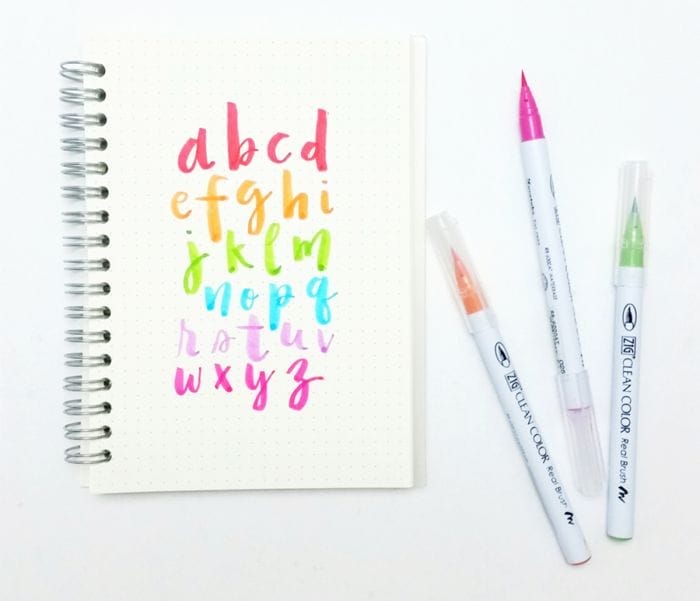 a b c d
e f g h i
j k l m
n o p q
r s t u v
w x y z
ZIG CLEAN COLOR Real Brush
ZIG CLEAN COLOR Real Brush